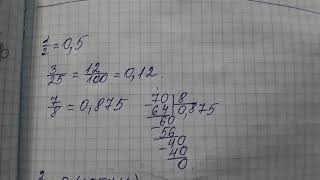 1/2 = 0,5
3/25 = 12/100 = 0,12.
7/8 = 0,875
70 | 8
64 | 0,875
60
56
40
40
0